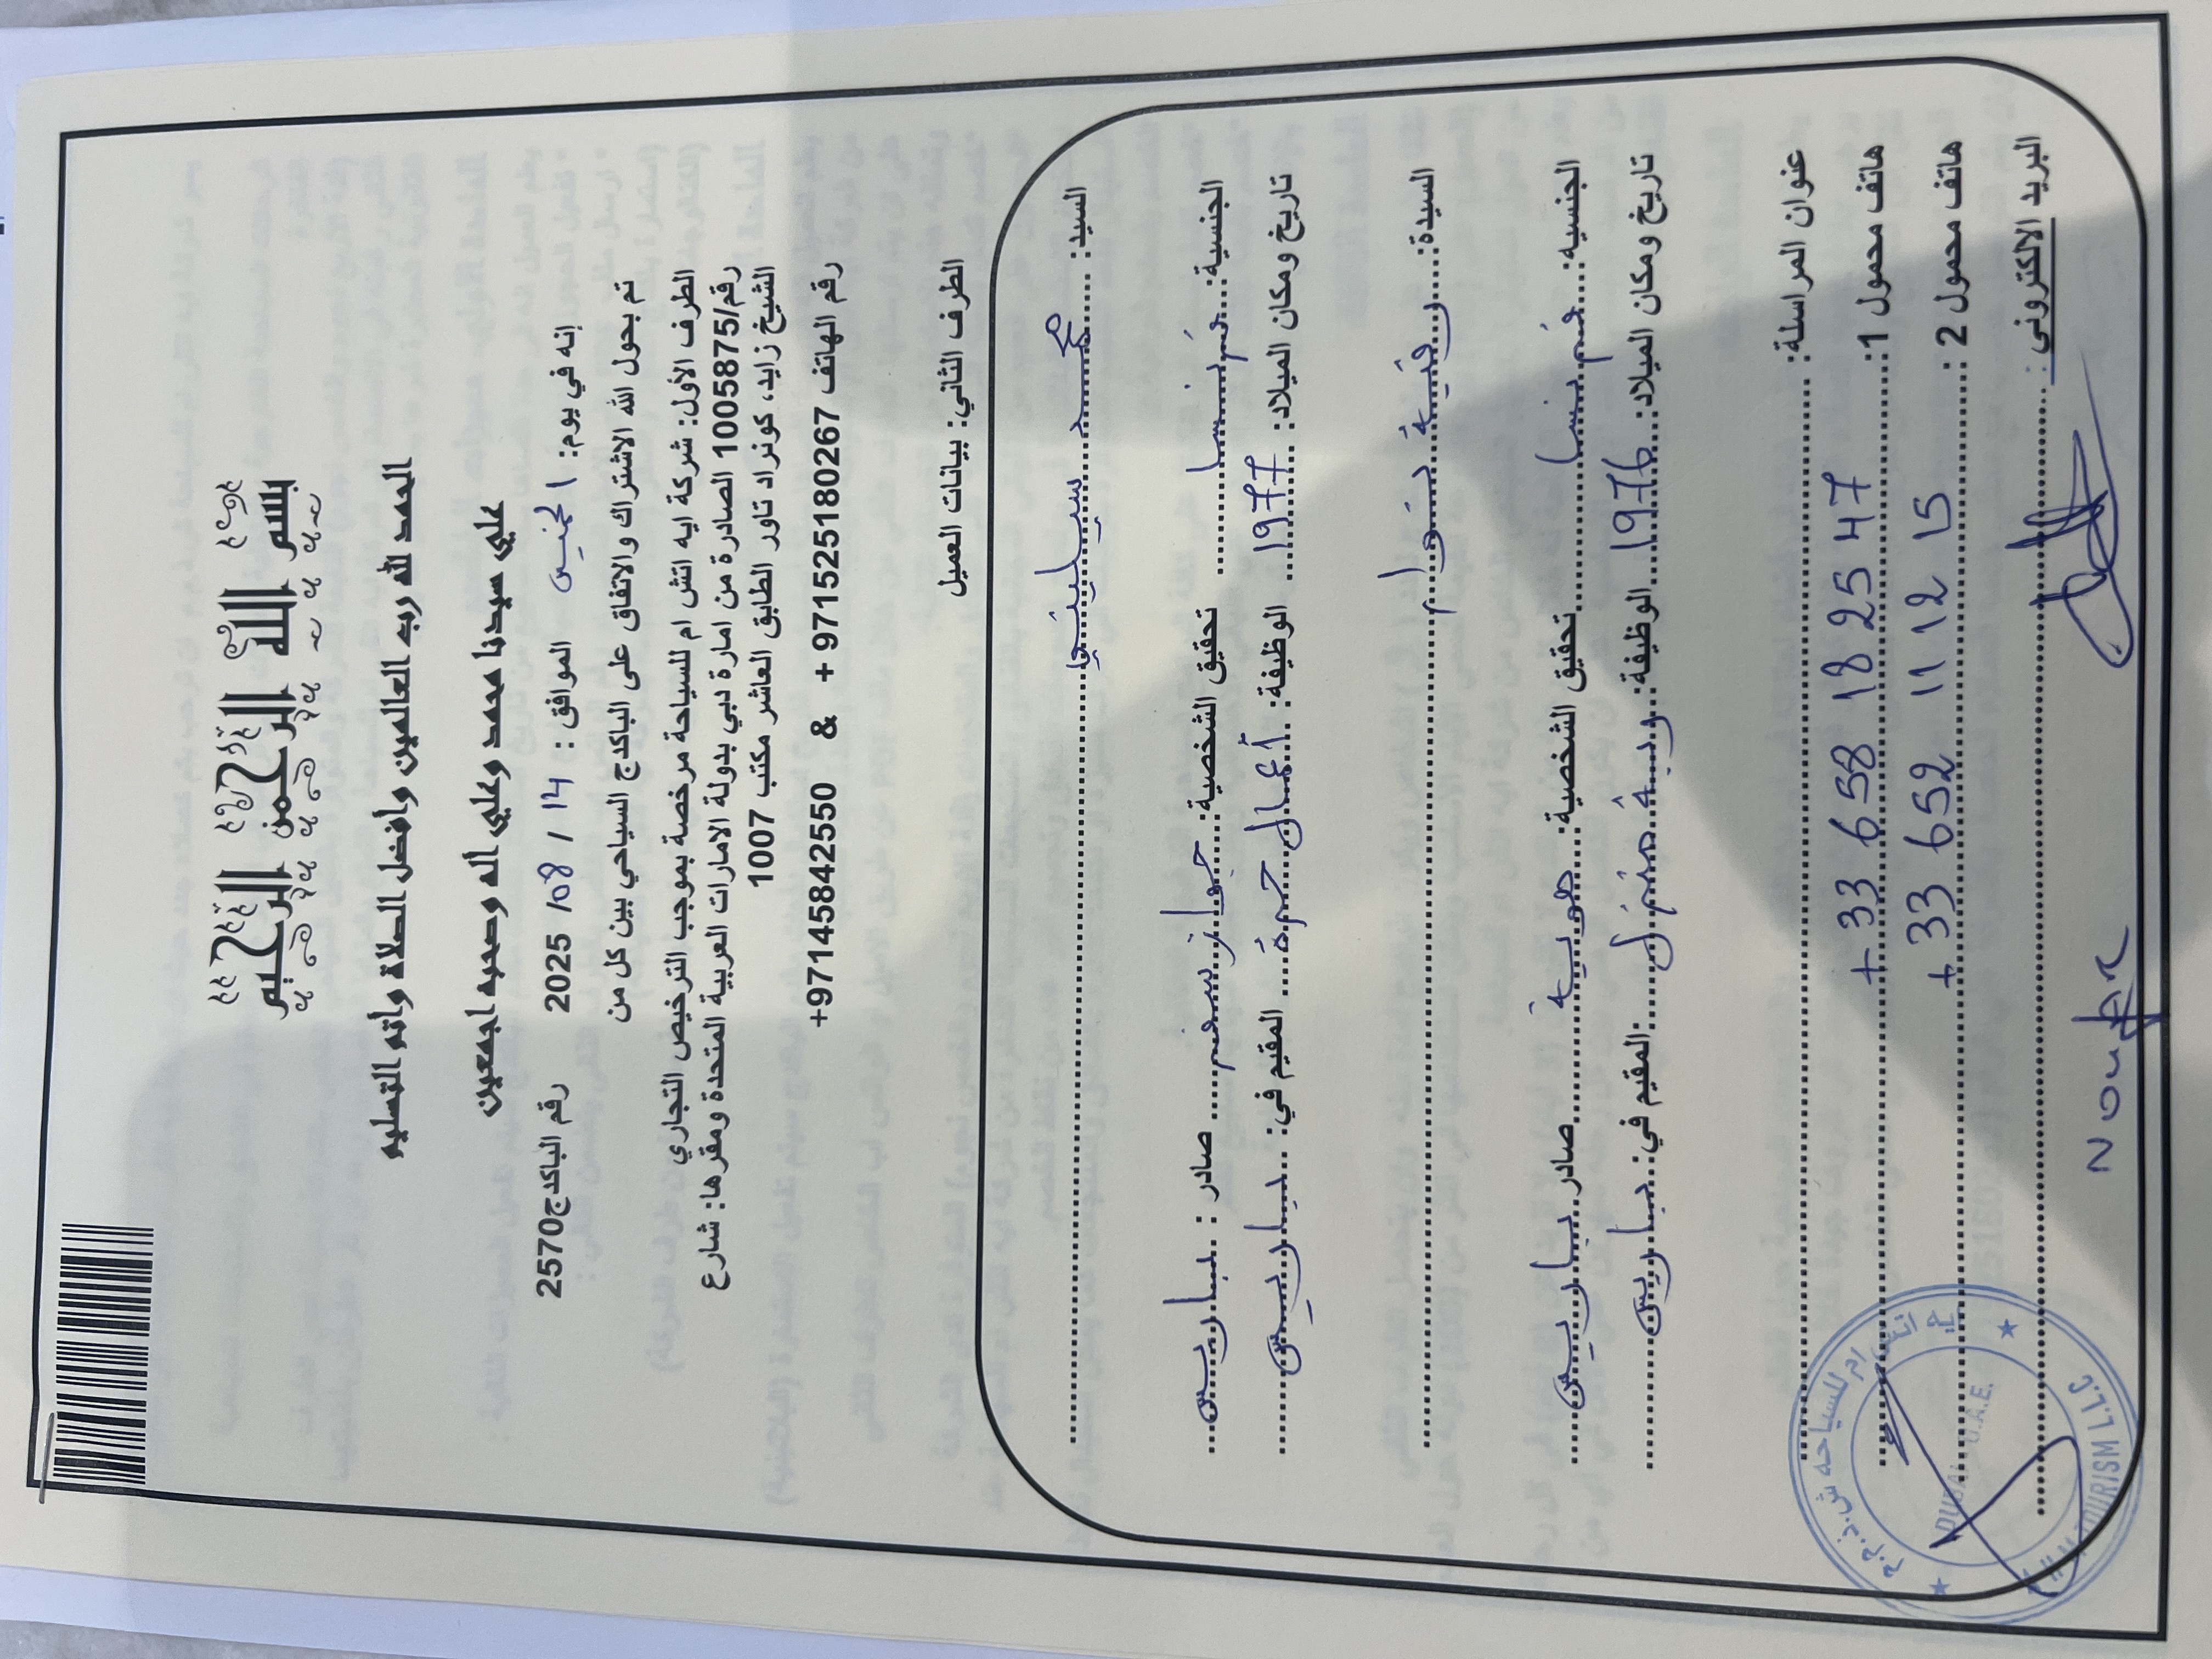 بسم الله الرحمن الرحيم
الحمد لله رب العالمين وافضل الصلاة واتم التسليم
على سيدنا محمد وعلى اله وصحبه اجمعين
إنه في يوم: الخميس الموافق : 14 / 08/ 2025 رقم الباكدج2570
تم بحول الله الاشتراك والاتفاق على الباكدج السياحي بين كل من
الطرف الأول: شركة ايه اتش ام للسياحة مرخصة بموجب الترخيص التجاري
رقم/1005875 الصادرة من امارة دبي بدولة الامارات العربية المتحدة ومقرها: شارع
الشيخ زايد، كونراد تاور الطابق العاشر مكتب 1007
رقم الهاتف 971525180267 + & 97145842550+
الطرف الثاني: بيانات العميل
السيد: محمد
الجنسية: فرنسا تحقيق الشخصية: جواز سفر صادر : باريس
تاريخ ومكان الميلاد: 1977 الوظيفة: أعمال حرة المقيم في: باريس
السيدة: رقية
الجنسية: فرنسا تحقيق الشخصية: هوية صادر باريس
تاريخ ومكان الميلاد: 1976 الوظيفة: ربة منزل المقيم في: باريس
عنوان المراسلة:
هاتف محمول 1: +33 658 18 25 47
هاتف محمول 2 : +33 652 11 12 15
البريد الالكتروني :
ايه اتش ام للسياحه ش.ذ.م.م
DUBAI - U.A.E.
TOURISM L.L.C